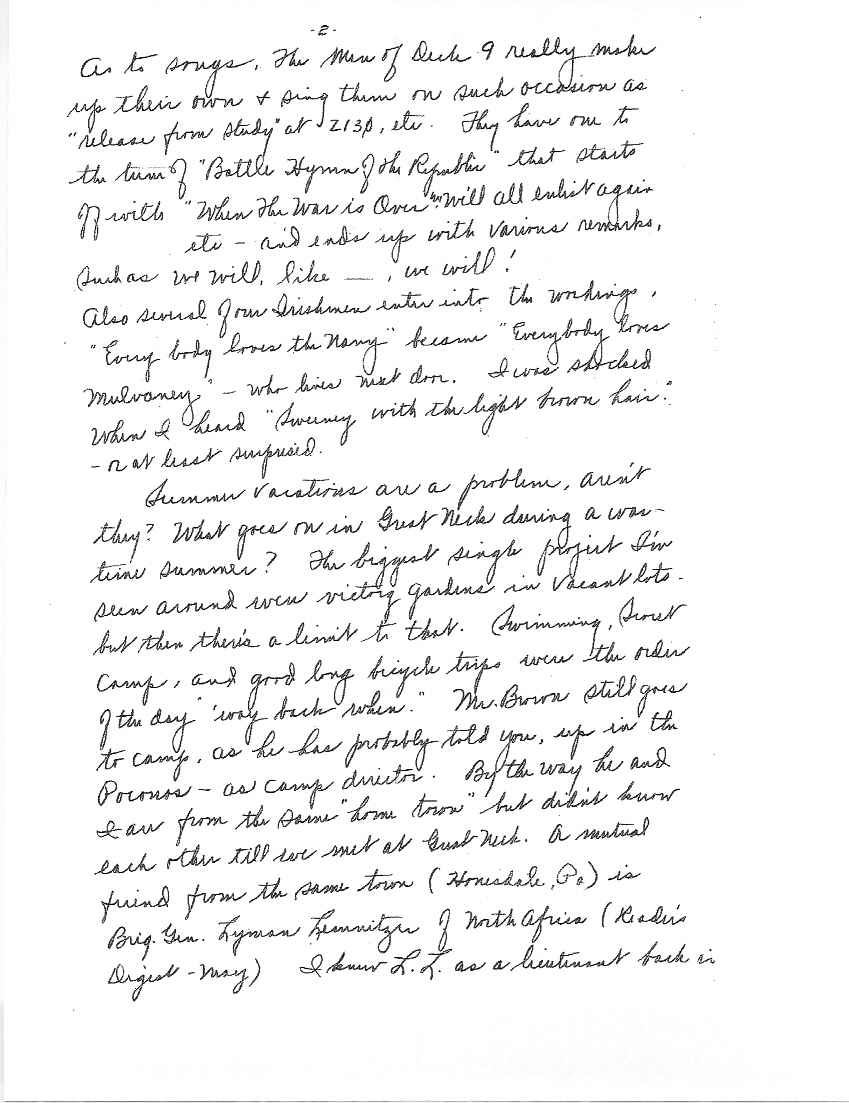 -2-
As to songs, The Men of Deck 9 really make
up their own + sing them on such occasion as
"release from study" at 2130, etc. They have one to
the tune of "Battle Hymn of the Republic" that starts
off with "When The War is Over We Will all enlist again
etc - and ends up with various remarks,
Such as we will, like —, we will!
Also several of our Irishmen enter into the workings,
"Every body loves the Navy" became "Everybody loves
Mulvaney" - who lives next door. I was shocked
When I heard "Sweeney with the light brown hair."
- or at least surprised.
Summer vacations are a problem, aren't
they? What goes on in Great Neck during a war-
time summer? The biggest single project I'm
seen around were victory gardens in vacant lots -
but then there's a limit to that. Swimming, Scout
Camp, and good long bicycle trips were the order
of the day "'way back when." Mr. Brown still goes
to camp, as he has probably told you, up in the
Poconos - as camp director. By the way he and
I are from the same "home town" but didn't know
each other till we met at Great Neck. A mutual
friend from the same town (Honesdale, Pa) is
Brig. Gen. Lyman Lemnitzer of North Africa (Reader's
Digest - May) I knew L.L. as a lieutenant back in